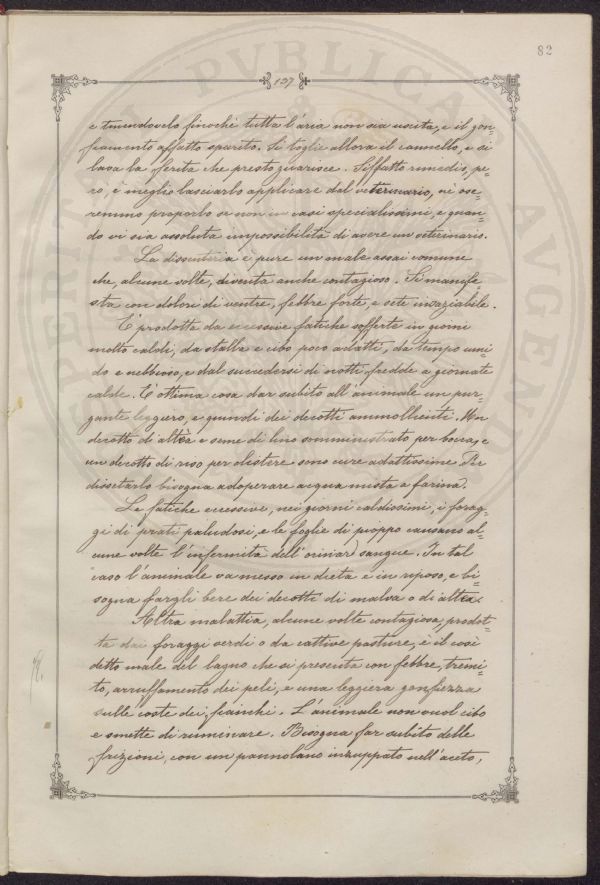 82
127
e tenendovelo finochè tutta l'aria non sia uscita, e il gon-
fiamento affatto sparito. Si toglie allora il cannello, e si
lava la ferita che presto guarisce. Siffatto rimedio, pe-
rò, è meglio lasciarlo applicare dal veterinario, nè ose-
remmo proporlo se non in casi specialissimi, e quan-
do vi sia assoluta impossibilità di avere un veterinario.
La dissenteria è pure un male assai comune
che, alcune volte, diventa anche contagioso. Si manife-
sta con dolori di ventre, febbre forte, e sete insaziabile.
E' prodotta da eccessive fatiche sofferte in giorni
molto caldi, da stalla e cibo poco adatti, da tempo umi-
do e nebbioso, e dal succedersi di notti fredde a giornate
calde. E' ottima cosa dar subito all'animale un pur-
gante leggiero, e quindi dei decotti ammollienti. Un
decotto di altèa e seme di lino somministrato per bocca, e
un decotto di riso per clistere sono cure adattissime. Per
dissetarlo bisogna adoperare acqua mista a farina.
Le fatiche eccessive, nei giorni caldissimi, i forag-
gi di prati paludosi, e le foglie di pioppo causano al-
cune volte l'infermità dell'orinar sangue. In tal
caso l'animale va messo in dieta e in riposo, e bi-
sogna fargli bere dei decotti di malva o di altèa.
Altra malattia, alcune volte contagiosa, prodot-
ta dai foraggi verdi o da cattive pasture, è il così
detto male del bagno che si presenta con febbre, tremi-
to, arruffamento dei peli, e una leggiera gonfiezza
sulle coste dei fianchi. L'animale non vuol cibo
e smette di ruminare. Bisogna far subito delle
frizioni, con un pannolano inzuppato nell'aceto,
PVBLICA
AVGEND